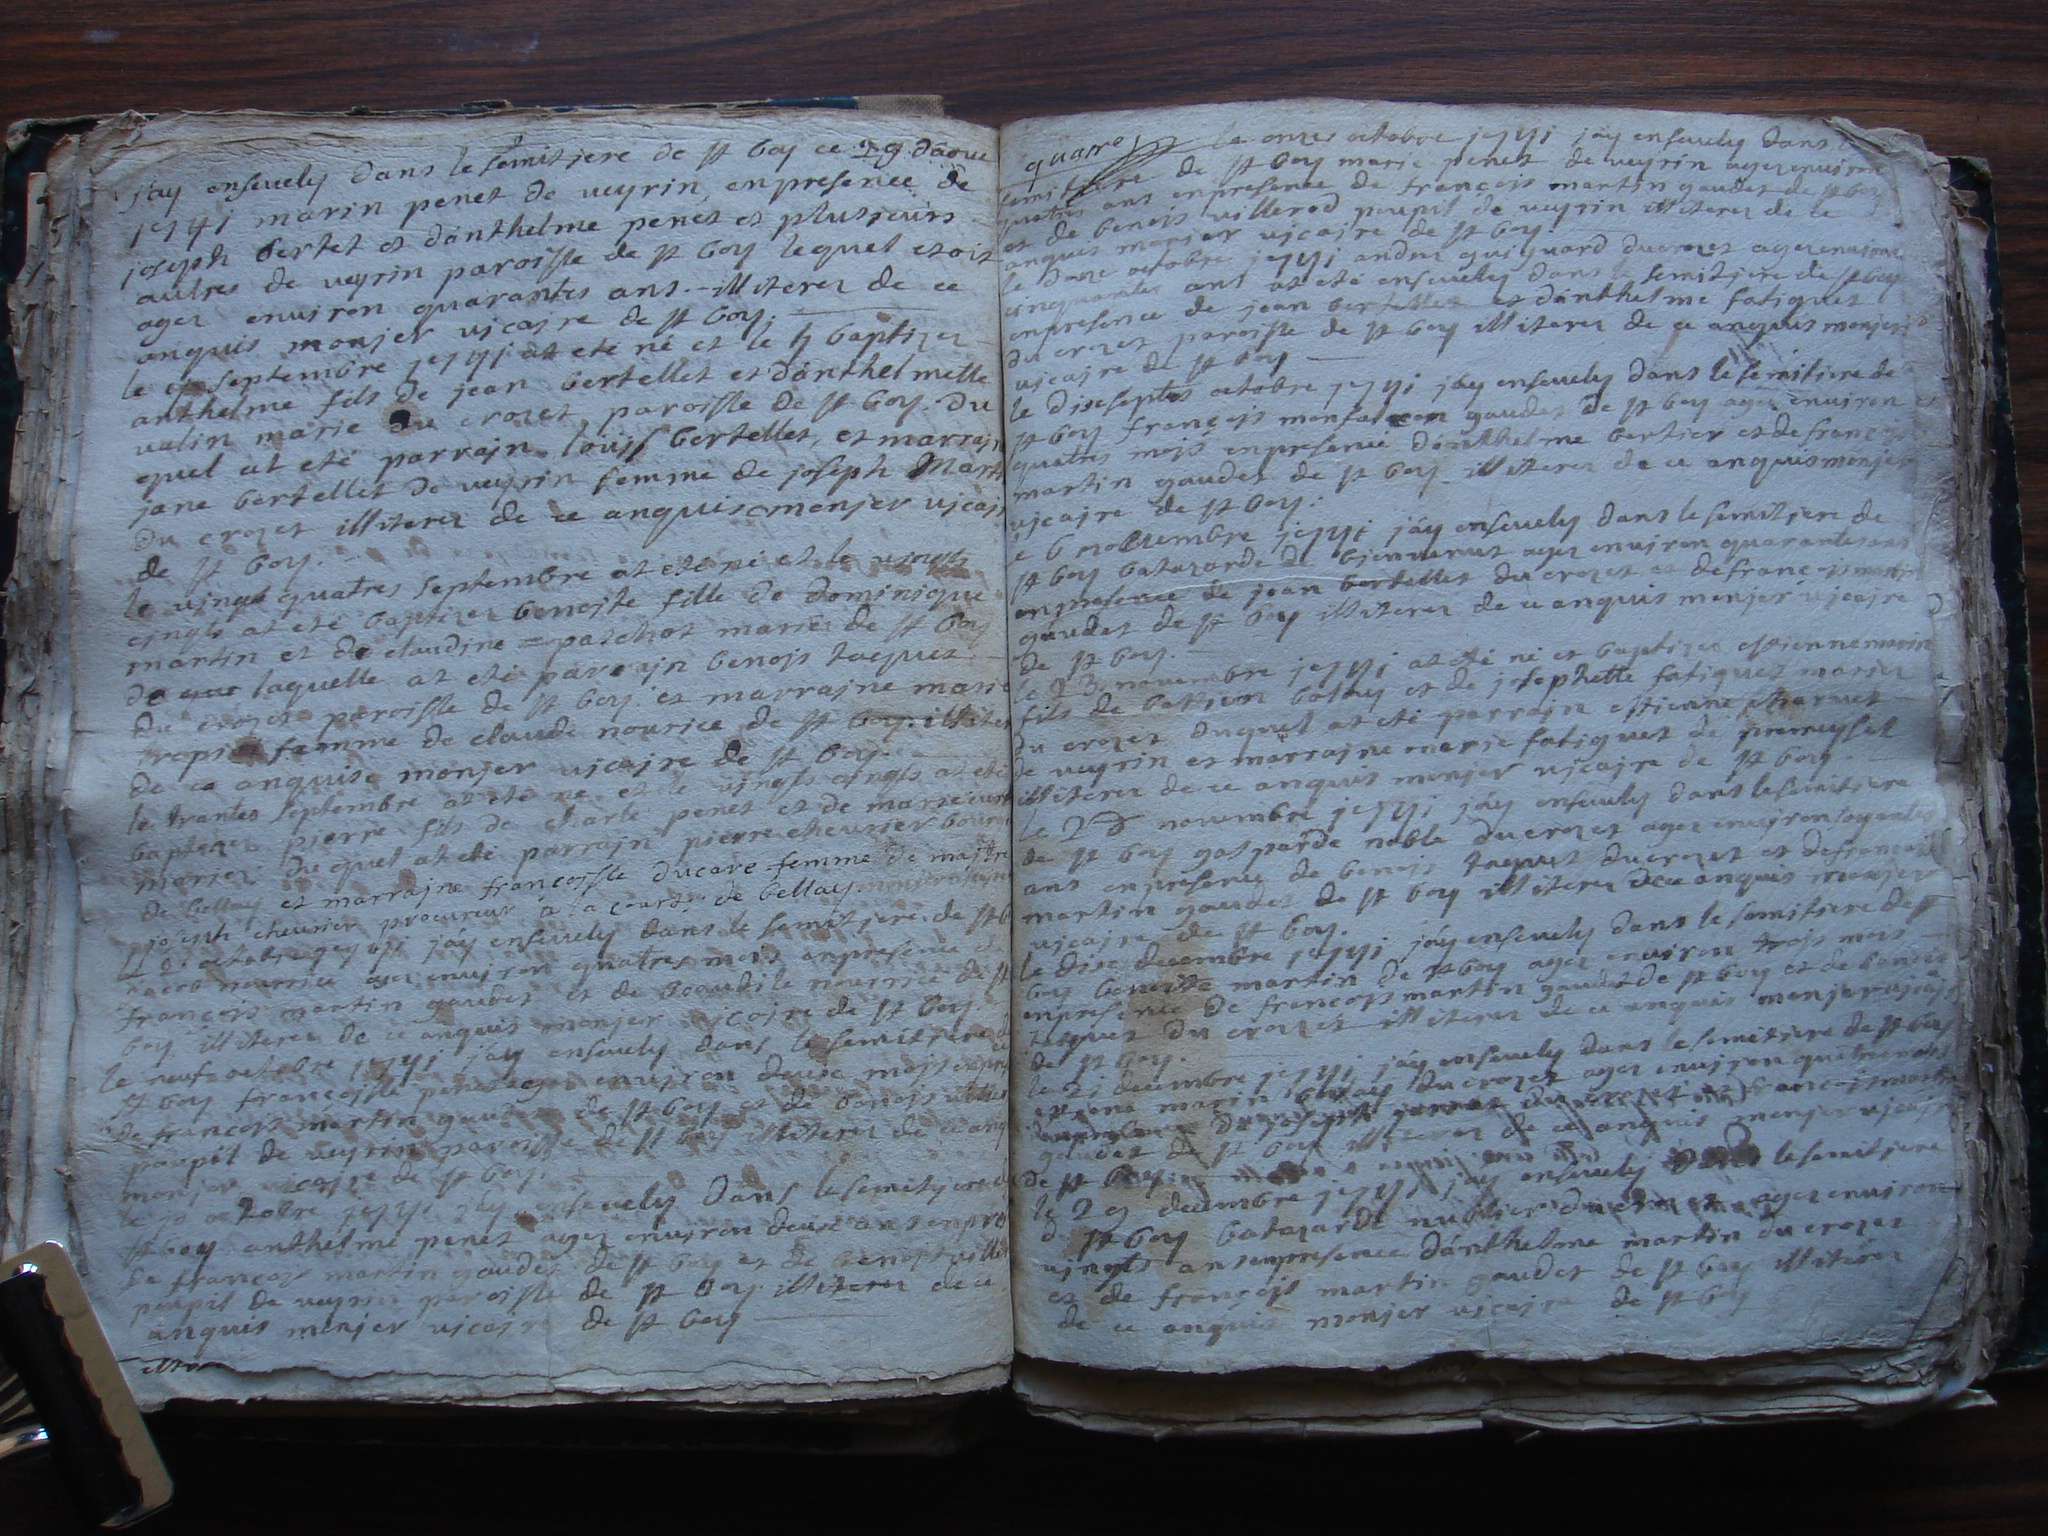 jay ensevely dans le semitiere de st boy ce 29 daoue
1741 marin penet de veyrin enpresence de
joseph bertet et danthelme penet et plusieurs
autres de veyrin paroisse de st boy lequel etoit
agez environ quarantes ans illiterez de ce
anquis monjer vicaire de st boy.
le septembre 1741 at eté né et le 4 baptizez
anthelme fils de jean bertellet et danthelmette
valin marie du crozet paroisse de st boy. du
quel at eté parrain louis bertellet, et marrain
jane bertellet de veyrin femme de joseph Mart
du crozet illiterez de ce anquis monjer vicai
de st boy.
le vingt quatres septembre at eté né et le vingts
cingts at eté baptizez benoite fille de dominique
martin et de claudine patchot mariez de st boy
de laquelle at eté parrain benois taquet
du crozet paroisse de st boy et marraine marie
tropie femme de claude nourice de st boy. illiter
de ce anquise monjer vicaire de st boy.
le trantes septembre at eté né et le vingts cingts at eté
baptizez pierre fils de charle penet et de marie
mariez duquel at eté parrain pierre chevrier
de bellay et marraine françoisse ducare femme de maitre
joseph chevrier procureur à la court de bellay
octobre 1741 jay ensevely dans le semitiere de st
nourrice agez environ quatres mois enpresence de
françois martin gaudet et de nourrice de st
boy illiterez de ce anquis monjer vicaire de st boy.
le neuf octobre 1741 jay ensevely dans le semitiere de
st boy françoisse penet agez environ deuxe mois enpres
de françois martin gaudet de st boy et de benois viller
poupil de veyrin paroisse de st boy illiterez de ce anq
monjer vicaire de st boy.
le 10 octobre 1741 jay ensevely dans le semitjere de
st boy anthelme penet agez environ deuxe ans enpre
de françois martin gaudet de st boy et de benois viller
poupil de veyrin paroisse de st boy illiterez de ce
anquis monjer vicaire de st boy
quatre le onzes octobre 1741 jay ensevely dans le
semitiere de st boy marie penet de veyrin agez environ
quatres ans enpresence de françois martin gaudet de st boy
et de benois villerod poupil de veyrin illiterez de ce
anquis monjer vicaire de st boy.
le doze octobre 1741 andrez guiguard ducrozet agez environ
cinquantes ans at eté ensevely dans le semitjere de st boy
enpresence de jean bertellet et danthelme fatiquet
du crozet paroisse de st boy illiterez de ce anquis monjer
vicaire de st boy
le diseseptes octobre 1741 jay ensevely dans le semitiere de
st boy françois gaudet de st boy agez environ
quatres mois enpresence danthelme bertier et de françois
martin gaudet de st boy illiterez de ce anquis monjer
vicaire de st boy.
le 6 novembre 1741 jay ensevely dans le semitjere de
st boy batazarde de agez environ quarantes ans
enpresence de jean bertellet du crozet et de françois martin
gaudet de st boy illiterez de ce anquis monjer vicaire
de st boy.
le 23 novembre 1741 at eté né et baptizez estienne marin
fils de balay et de josephette fatiquet mariez
du crozet duquel at eté parrain estienne charvet
de veyrin et marraine marie fatiquet de premeyset
illiterez de ce anquis monjer vicaire de st boy.
le novembre 1741 jay ensevely dans le semitiere
de st boy gasparde noble ducrozet agez environ soyantes
ans enpresence de benois taquet ducrozet et de françois
martin gaudet de st boy illiterez de ce anquis monjer
vicaire de st boy.
le dixe decembre 1741 jay ensevely dans le semitiere de st
boy benoitte martin de st boy agez environ trois mois
enpresence de françois martin gaudet de st boy et de benois
taquet du crozet illiterez de ce anquis monjer vicaire
de st boy.
le 21 decembre 1741 jay ensevely dans le semitiere de st boy
estiene marin balay du crozet agez environ quatres mois
de joseph du crozet françois martin
gaudet de st boy illiterez de ce anquis monjer vicaire
de st boy
le 29 decembre 1741 jay ensevely dans le semitjere
de st boy batazarde du crozet agez environ
vingts ans enpresence danthelme martin du crozet
et de françois martin gaudet de st boy illiterez
de ce anquis monjer vicaire de st boy